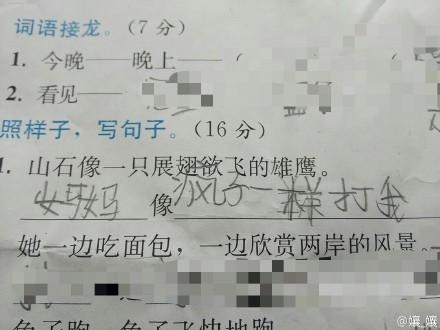 词语接龙。(7分)
1. 今晚——晚上——(
2. 看见——
照样子，写句子。(16分)
1. 山石像一只展翅欲飞的雄鹰。
妈妈 像 疯子一样打我
她一边吃面包，一边欣赏两岸的风景。
兔子跑 兔子飞快地跑
@孃_孃